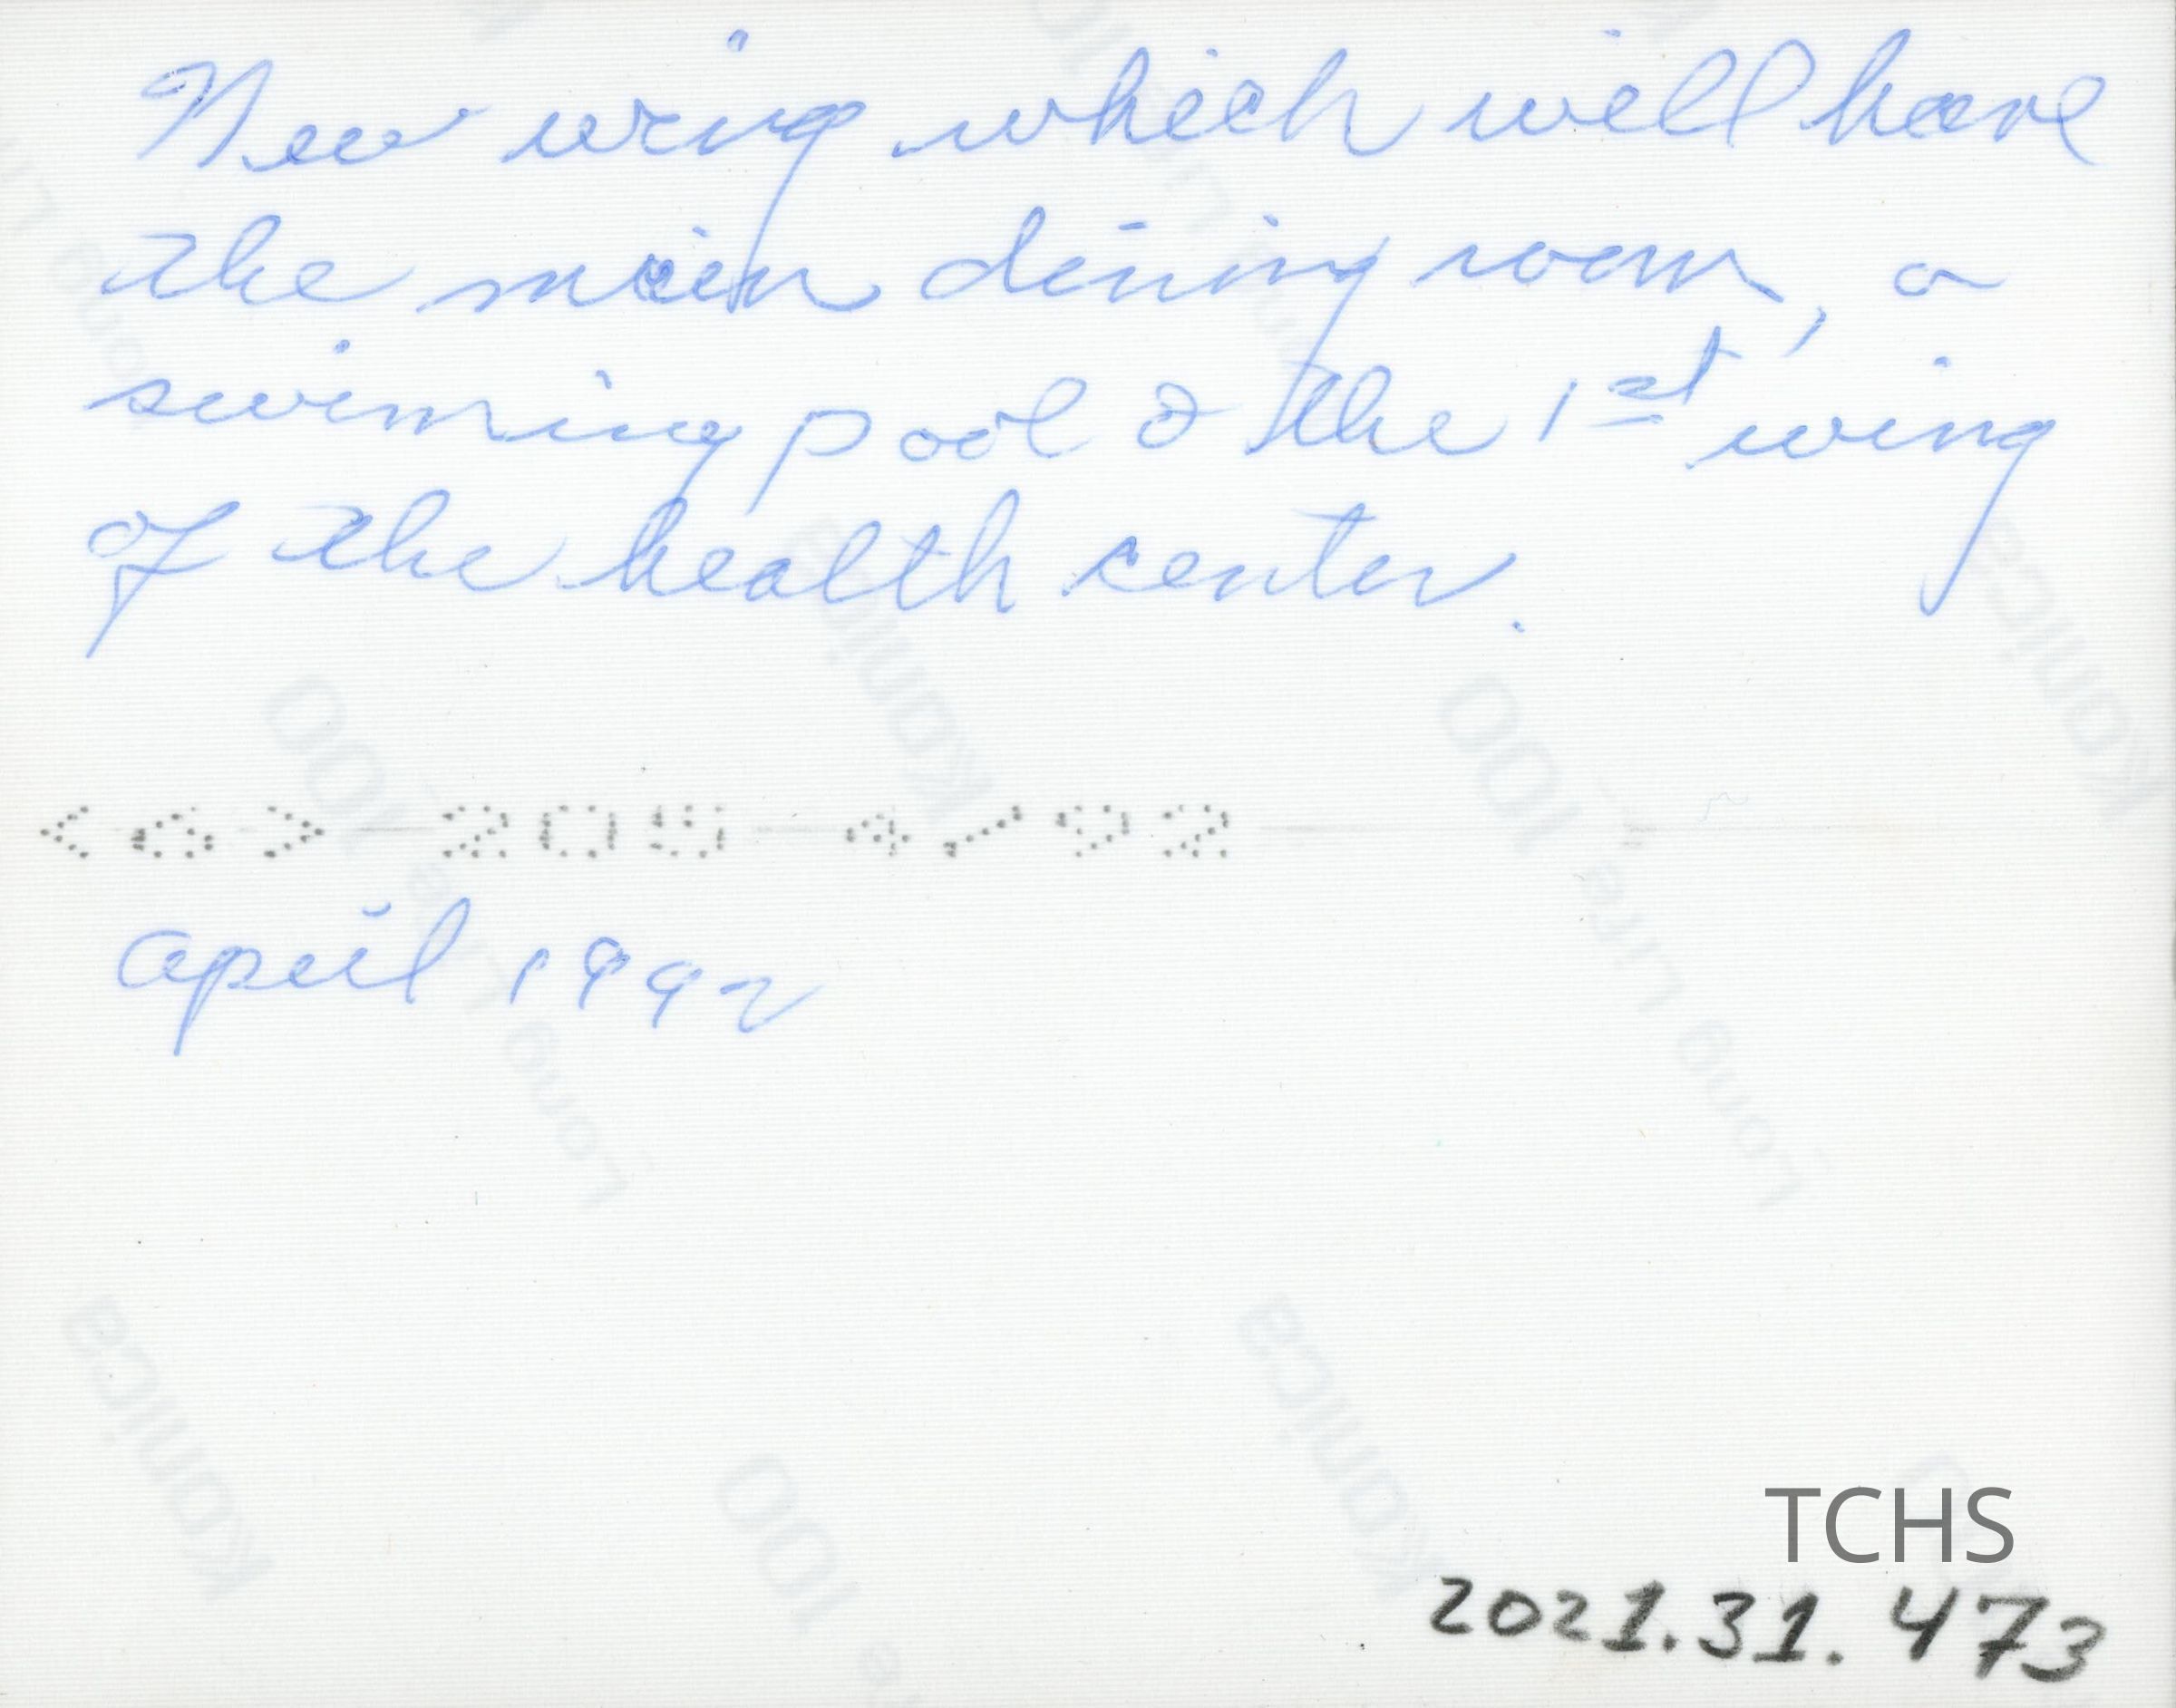 New wing which will have
the main dining room, a
swiming pool & the 1st wing
of the health center.
<6> 205 4/92
april 1992
TCHS
2021.31.473
Konica
100
Long Life